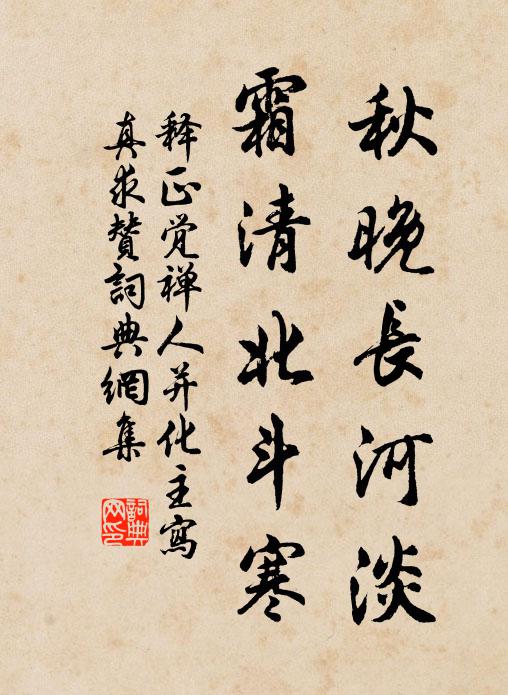 秋晚長河淡
霜清北斗寒
释正觉禅人并化主寫
真求贊詞典網集
詞典网印